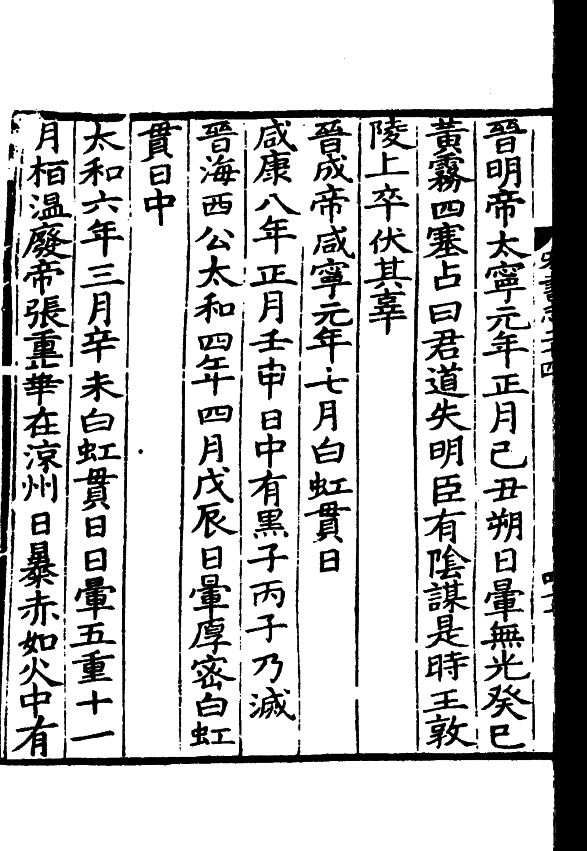 晉明帝太寧元年正月己丑朔日暈無光癸巳
黃霧四塞占曰君道失明臣有陰謀是時王敦
陵上卒伏其辜
晉成帝咸寧元年七月白虹貫日
咸康八年正月壬申日中有黑子丙子乃滅
晉海西公太和四年四月戊辰日暈厚密白虹
貫日中
太和六年三月辛未白虹貫日日暈五重十一
月桓溫廢帝張重華在涼州日暴赤如火中有